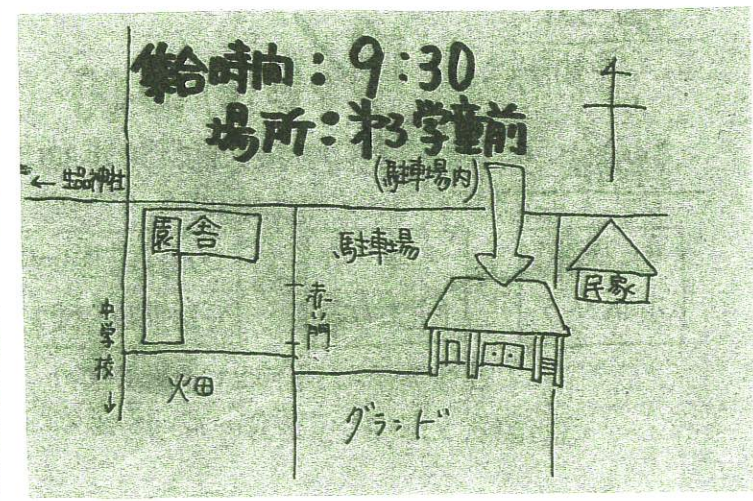 集合時間：9:30
場所：第3学童前
(駐車場内)
←生品神社
園舎
駐車場
民家
赤い門
中学校↓
畑
グランド